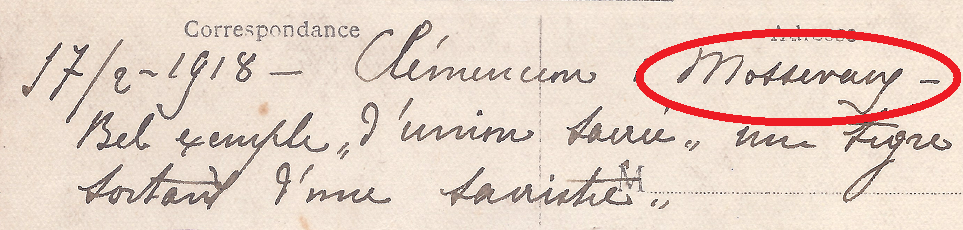 Correspondance Adresse
17/2 - 1918 - Clémenceau Mossevaux -
Bel exemple „ d'union sacrée „ un tigre
sortant d'une sacristie „
M